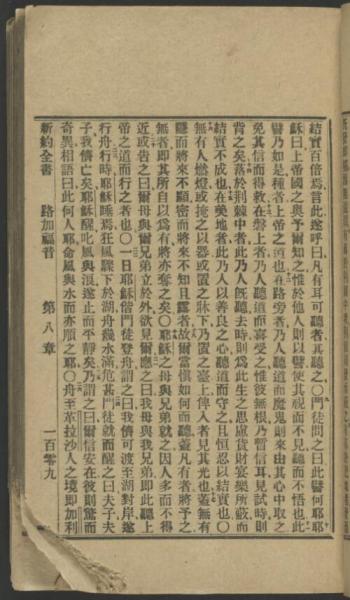 結實百倍焉言此遂呼曰凡有耳可聽者其聽之〇門徒問之曰此譬何耶耶
穌曰上帝國之奧予爾知之惟於他人則以譬使其視而不見聽而不悟也此
譬乃如是種者上帝之道也在路旁者乃人聽道而魔鬼則來由其心中取之
免其信而得救在磐上者乃人聽道而喜受之惟彼無根乃暫信耳見試時則
背之矣落於荊棘中者此乃人既聽去時則為此生之思慮貨財宴樂所蔽而
結實不成也在美地者此乃人以善良之心聽道而守之且恒忍以結實也〇
無有人燃燈或掩之以器或置之牀下乃置之臺上俾入者見其光也蓋無有
隱而將來不顯密而將來不知且露者故爾當慎如何而聽蓋凡有者將予之
無者即其所自以為有將亦奪之矣〇耶穌之母與兄弟就之因人多而不得
近或告之曰爾母與爾兄弟立於外欲見爾應之曰我母與我兄弟即此聽上
帝之道而行之者也〇一日耶穌偕門徒登舟謂之曰我儕可渡至湖對岸遂
行舟行時耶穌睡焉狂風驟下於湖舟幾水滿危甚門徒就而醒之曰夫子夫
子我儕亡矣耶穌醒叱風與浪遂止而平靜矣乃謂之曰爾信安在彼則驚而
奇異相語曰此何人耶命風與水而亦順之耶〇舟至革拉沙人之境即加利
新約全書 路加福音 第八章 一百零九